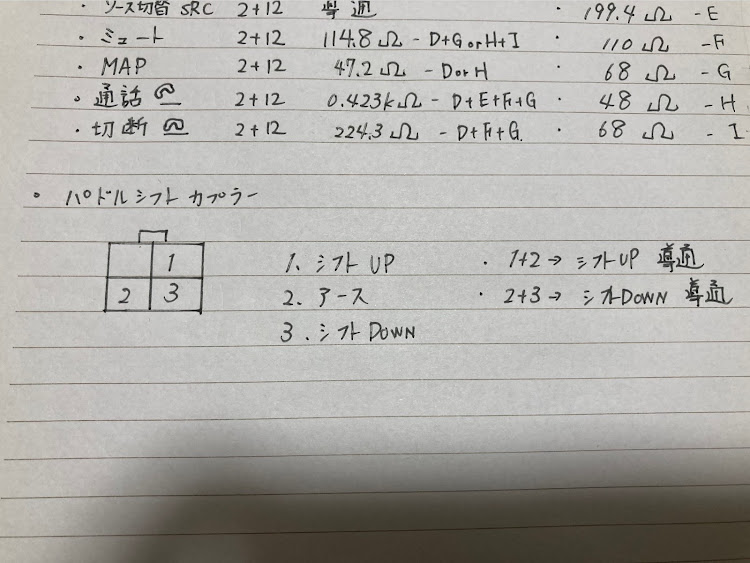 ・ソース切替 SRC 2+12 導通 ・199.4Ω -E
・ミュート 2+12 114.8Ω - D+G or H+I ・110Ω -F
・MAP 2+12 47.2Ω - D or H ・68Ω -G
・通話 2+12 0.423kΩ - D+E+F+G ・48Ω -H
・切断 2+12 224.3Ω - D+F+G. ・68Ω -I
・パドルシフトカプラー
1
2 3
1. シフトUP ・1+2→シフトUP 導通
2. アース ・2+3→シフトDOWN 導通
3. シフトDOWN